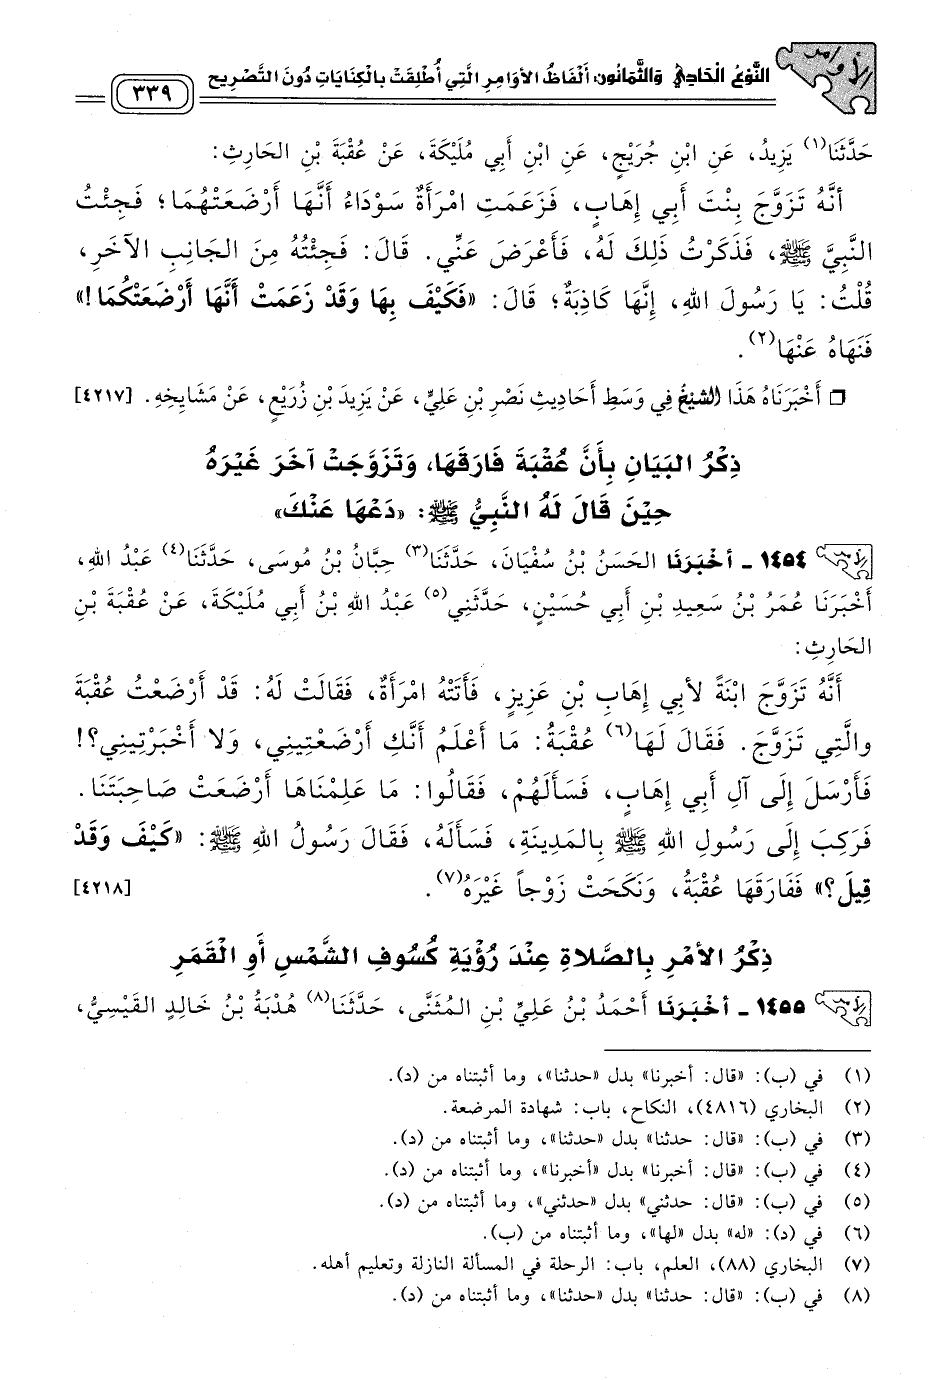 الأوامر
النَّوْعُ الْحَادِي وَالثَّمَانُون: أَلْفَاظُ الأوَامِرِ الَّتِي أُطْلِقَتْ بالْكِنَايَاتِ دُونَ التَّصْرِيح
٣٣٩
حَدَّثَنَا(١) يَزِيدُ، عَنِ ابْنِ جُرَيْجٍ، عَنِ ابْنِ أَبِي مُلَيْكَةَ، عَنْ عُقْبَةَ بْنِ الحَارِثِ:
أنَّهُ تَزَوَّجَ بِنْتَ أَبِي إِهَابٍ، فَزَعَمَتِ امْرَأَةٌ سَوْدَاءُ أَنَّهَا أَرْضَعَتْهُمَا؛ فَجِئْتُ
النَّبِيَّ ﷺ، فَذَكَرْتُ ذَلِكَ لَهُ، فَأَعْرَضَ عَنِّي. قَالَ: فَجِئْتُهُ مِنَ الجَانِبِ الآخَرِ،
قُلْتُ: يَا رَسُولَ اللهِ، إِنَّهَا كَاذِبَةٌ؛ قَالَ: «فَكَيْفَ بِهَا وَقَدْ زَعَمَتْ أَنَّهَا أَرْضَعَتْكُمَا!»
فَنَهَاهُ عَنْهَا(٢).
❒ أَخْبَرَنَاهُ هَذَا الشيْخُ فِي وَسَطِ أَحَادِيثِ نَصْرِ بْنِ عَلِيٍّ، عَنْ يَزِيدَ بْنِ زُرَيْعٍ، عَنْ مَشَايِخِهِ. [٤٢١٧]
ذِكْرُ البَيَانِ بِأَنَّ عُقْبَةَ فَارَقَهَا، وَتَزَوَّجَتْ آخَرَ غَيْرَهُ
حِيْنَ قَالَ لَهُ النَّبِيُّ ﷺ: «دَعْهَا عَنْكَ»
١٤٥٤ - أخْبَرَنَا الحَسَنُ بْنُ سُفْيَانَ، حَدَّثَنَا(٣) حِبَّانُ بْنُ مُوسَى، حَدَّثَنَا(٤) عَبْدُ اللهِ،
أَخْبَرَنَا عُمَرُ بْنُ سَعِيدِ بْنِ أَبِي حُسَيْنٍ، حَدَّثَنِي(٥) عَبْدُ اللهِ بْنُ أَبِي مُلَيْكَةَ، عَنْ عُقْبَةَ بْنِ
الحَارِثِ:
أنَّهُ تَزَوَّجَ ابْنَةً لأبِي إِهَابِ بْنِ عَزِيزٍ، فَأَتَتْهُ امْرَأَةٌ، فَقَالَتْ لَهُ: قَدْ أَرْضَعْتُ عُقْبَةَ
والَّتِي تَزَوَّجَ. فَقَالَ لَهَا(٦) عُقْبَةُ: مَا أَعْلَمُ أَنَّكِ أَرْضَعْتِينِي، وَلا أَخْبَرْتِينِي؟!
فَأَرْسَلَ إِلَى آلِ أَبِي إِهَابٍ، فَسَأَلَهُمْ، فَقَالُوا: مَا عَلِمْنَاهَا أَرْضَعَتْ صَاحِبَتَنَا.
فَرَكِبَ إِلَى رَسُولِ اللهِ ﷺ بِالمَدِينَةِ، فَسَأَلَهُ، فَقَالَ رَسُولُ اللهِ ﷺ: «كَيْفَ وَقَدْ
قِيلَ؟» فَفَارَقَهَا عُقْبَةُ، وَنَكَحَتْ زَوْجاً غَيْرَهُ(٧). [٤٢١٨]
ذِكْرُ الأمْرِ بِالصَّلاةِ عِنْدَ رُؤْيَةِ كُسُوفِ الشَّمْسِ أَوِ الْقَمَرِ
١٤٥٥ - أخْبَرَنَا أَحْمَدُ بْنُ عَلِيِّ بْنِ المُثَنَّى، حَدَّثَنَا(٨) هُدْبَةُ بْنُ خَالِدٍ القَيْسِيُّ،
(١) في (ب): «قال: أخبرنا» بدل «حدثنا»، وما أثبتناه من (د).
(٢) البخاري (٤٨١٦)، النكاح، باب: شهادة المرضعة.
(٣) في (ب): «قال: حدثنا» بدل «حدثنا»، وما أثبتناه من (د).
(٤) في (ب): «قال: أخبرنا» بدل «أخبرنا»، وما أثبتناه من (د).
(٥) في (ب): «قال: حدثني» بدل «حدثني»، وما أثبتناه من (د).
(٦) في (د): «له» بدل «لها»، وما أثبتناه من (ب).
(٧) البخاري (٨٨)، العلم، باب: الرحلة في المسألة النازلة وتعليم أهله.
(٨) في (ب): «قال: حدثنا» بدل «حدثنا»، وما أثبتناه من (د).